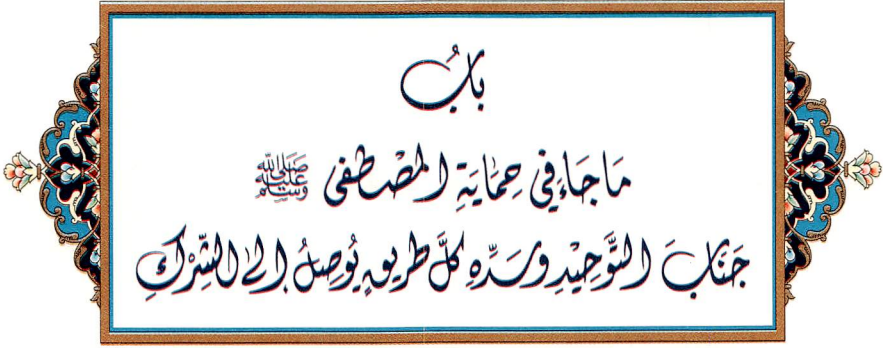 بَابُ
مَا جَاءَ فِي حِمَايَةِ الْمُصْطَفَى ﷺ
جَنَابَ التَّوْحِيْدِ وَسَدِّهِ كُلَّ طَرِيقٍ يُوصِلُ إِلَى الشِّرْكِ